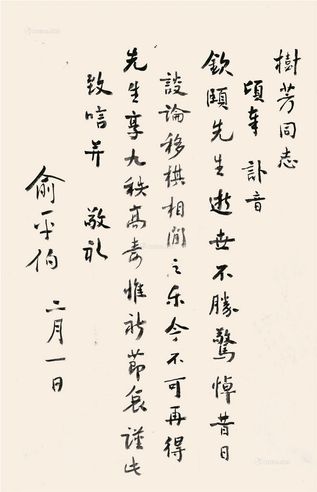 樹芳同志
頃奉 訃音
欽頤先生逝世不勝驚悼昔日
談論移棋相閒之乐今不可再得
先生享九秩高寿惟祈節哀謹此
致唁并 敬礼
俞平伯 二月一日